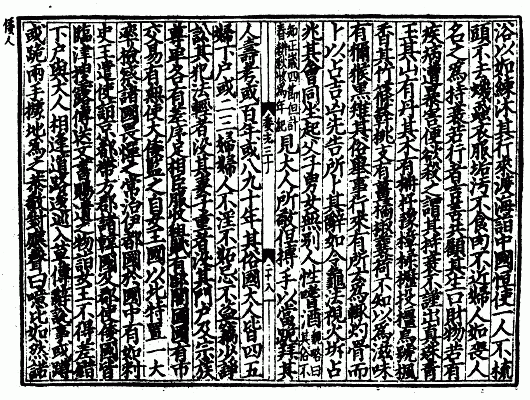 浴以如練沐其行來渡海詣中國恒使一人不梳
頭不去蟣蝨衣服垢污不食肉不近婦人如喪人
名之爲持衰若行者吉善共顧其生口財物若有
疾病遭暴害便欲殺之謂其持衰不謹出真珠青
玉其山有丹其木有柟杼豫樟楺櫪投橿烏號楓
香其竹篠簳桃支有薑橘椒蘘荷不知以爲滋味
有獮猴黒雉其俗舉事行來有所云爲輒灼骨而
卜以占吉凶先告所卜其辭如令龜法視火坼占
兆其會同坐起父子男女無別人性嗜酒魏略曰其俗不
知正歲四節但計春耕秋收爲年紀見大人所敬但搏手以當跪拜其
魏志三十
二十八
人壽考或百年或八九十年其俗國大人皆四五
婦下戶或二三婦婦人不淫不妒忌不盜竊少諍
訟其犯法輕者沒其妻子重者沒其門戶及宗族
尊卑各有差序足相臣服收租賦有邸閣國國有市
交易有無使大倭監之自女王國以北特置一大
率檢察諸國畏憚之常治伊都國於國中有如刺
史王遣使詣京都帶方郡諸韓國及郡使倭國皆
臨津搜露傳送文書賜遺之物詣女王不得差錯
下戶與大人相逢道路逡巡入草傳辭說事或蹲
或跪兩手據地爲之恭敬對應聲曰噫比如然諾
倭人